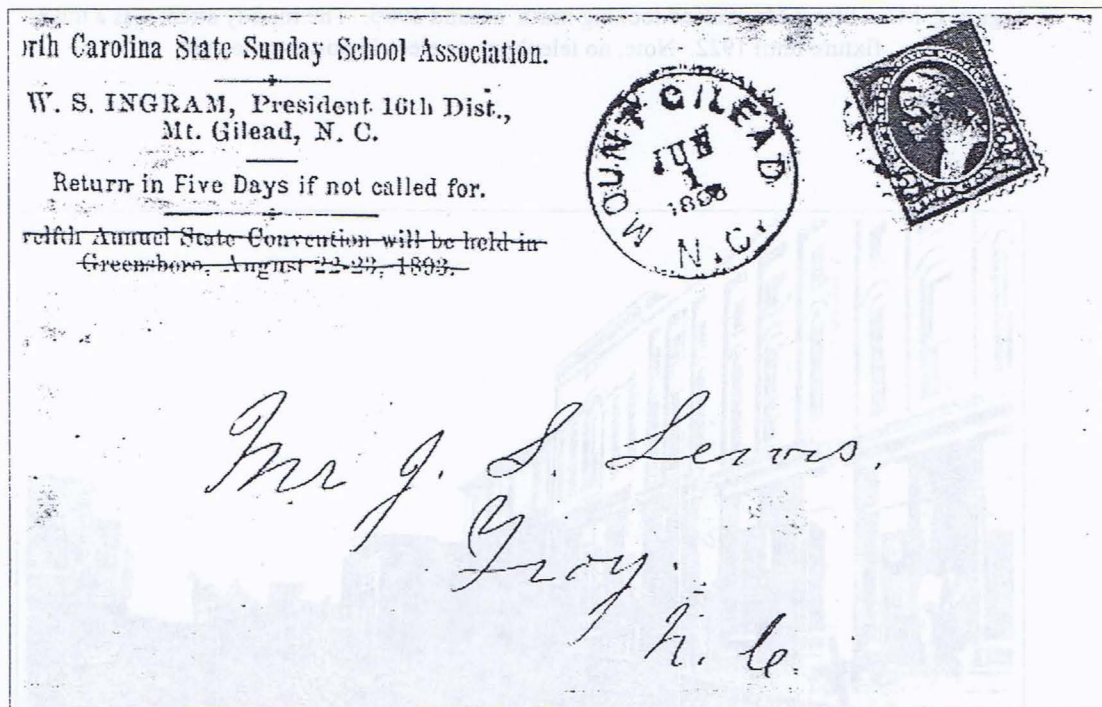 rth Carolina State Sunday School Association.
W. S. INGRAM, President 16th Dist.,
Mt. Gilead, N. C.
Return in Five Days if not called for.
welfth Annuel State Convention will be held in
Greensboro, August 22-23, 1893.
MOUNT GILEAD
JUN
1
N.C.
Mr J. S. Lewis.
Troy.
N. C.
fixture until 1922. Note, no tele